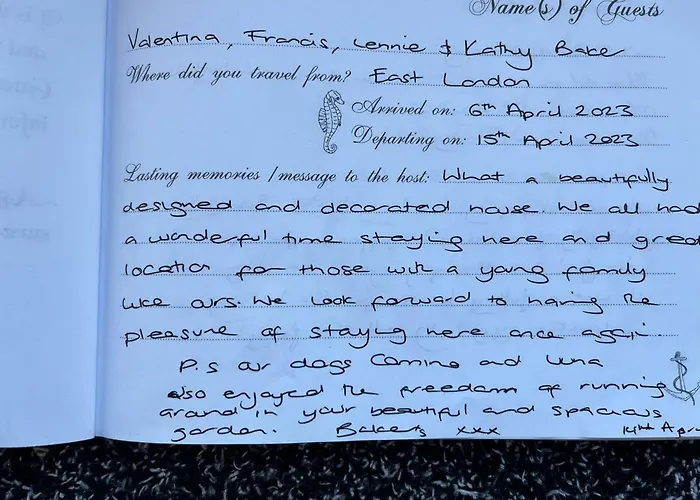 Name(s) of Guests
Valentina, Francis, Lennie & Kathy Baker
Where did you travel from? East London
Arrived on: 6th April 2023
Departing on: 15th April 2023
Lasting memories / message to the host: What a beautifully
designed and decorated house. We all had
a wonderful time staying here and great
location for those with a young family
like ours. We look forward to having the
pleasure of staying here once again.
P.S our dogs Camino and Luna
also enjoyed the freedom of running
around in your beautiful and spacious
garden. Bakers xxx
14th Apr